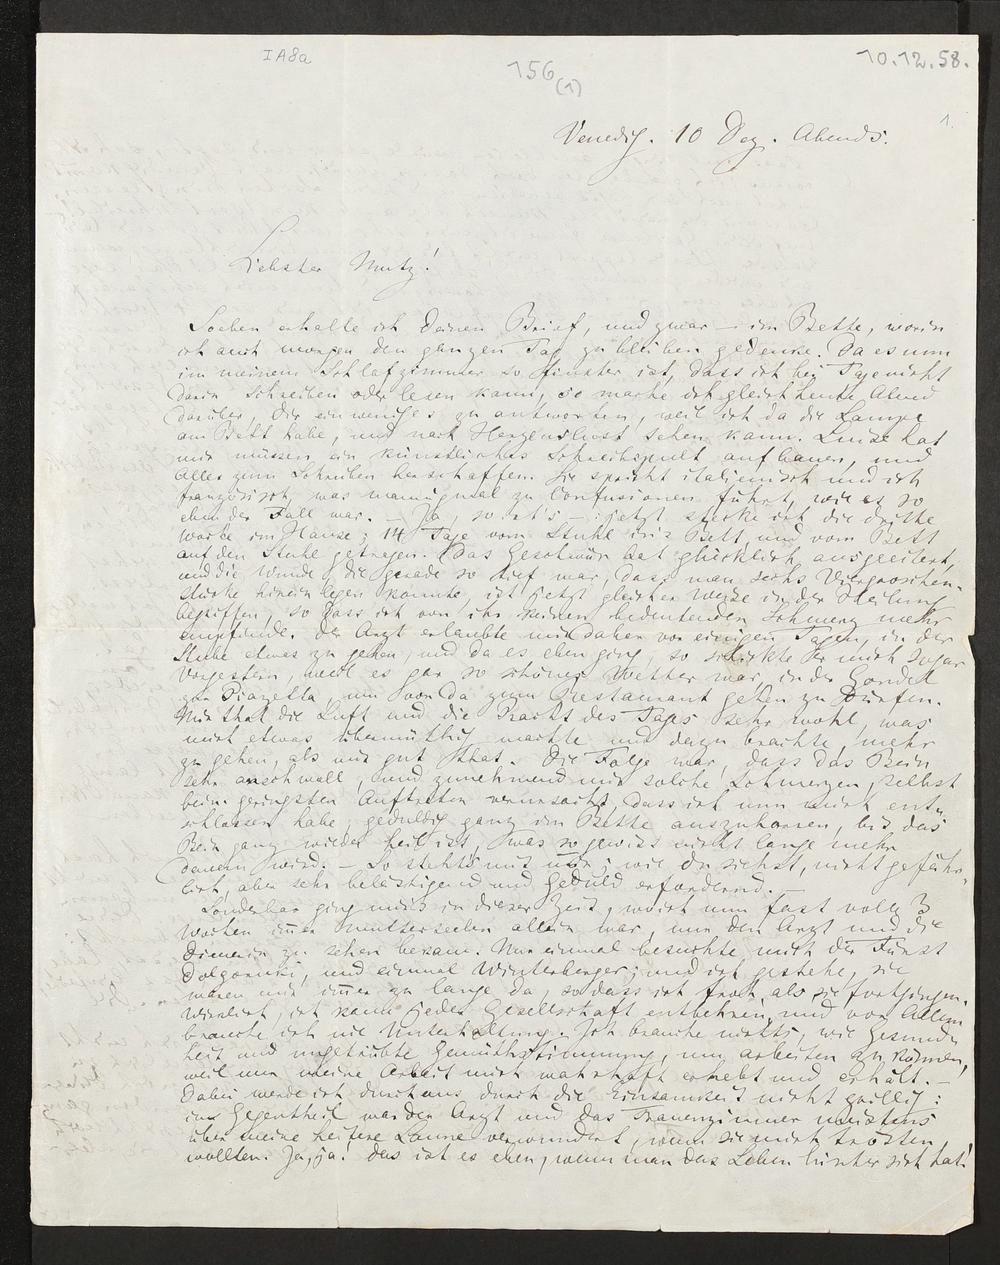 IA8a
156
(1)
10.12.58.
1.
Venedig. 10 Dez. Abends.
Liebster Mutz!
Soeben erhalte ich deinen Brief, und zwar – im Bette, worin
ich auch morgen den ganzen Tag zu bleiben gedenke. Da es nun
in meinem Schlafzimmer so finster ist, dass ich bei Tage nicht
darin schreiben oder lesen kann, so mache ich gleich heute Abend
darüber, dir ein weniges zu antworten, weil ich da die Lampe
am Bett habe, und nach Herzenslust sehen kann. Luise hat
mir müssen ein künstliches Schreibpult aufbauen, und
Alles zum Schreiben herschaffen. Sie spricht italienisch und ich
französisch, was mannigmal zu Confusionen führt, wie es so
eben der Fall war. – Ja, so ist's –: jetzt stecke ich die dritte
Woche im Hause; 14 Tage vom Stuhl in's Bett, und vom Bett
auf den Stuhl getragen. Das Geschwür hat glücklich ausgeeitert,
und die Wunde, die gerade so tief war, dass man sechs Viergroschen-
stücke hinein legen konnte, ist jetzt gleicher Weise in der Heilung
begriffen, so dass ich von ihr keinen bedeutenden Schmerz mehr
empfinde. Der Arzt erlaubte mir daher vor einigen Tagen, in der
Stube etwas zu gehen, und da es eben ging, so schickte er mich sogar
vorgestern, weil es gar so schönes Wetter war, in der Gondel
zur Piazetta, um von da zegen Restaurant gehen zu dürfen.
Mir that die Luft und die Pracht des Tages sehr wohl, was
mich etwas übermüthig machte und dazu brachte, mehr
zu gehen, als mir gut that. Die Folge war, dass das Bein
sehr anschwoll, und zunehmend mir solche Schmerzen, selbst
beim geringsten Auftreten verursacht, dass ich nun mich ent-
schlossen habe, geduldig ganz im Bette auszuharren, bis das
Bein ganz wieder heil ist, was so gewiss nicht lange mehr
dauern wird. – So steht's mit mir; wie du siehst, nicht gefähr-
lich, aber sehr belästigend und Geduld erfordernd. –
Sonderbar ging mir's in dieser Zeit, worin nun fast volle 3
Wochen immer mutterseelen allein war, nur den Arzt und die
Dienerin zu sehen bekam. Nur einmal besuchte mich der Fürst
Dolgorucki, und einmal Winterberger; und ich gestehe, sie
waren mir immer zu lange da, so dass ich froh, als sie fortgingen.
Wirklich, ich kann jeder Gesellschaft entbehren, und vor Allem
brauche ich nie Unterhaltung. Ich brauche nichts, wie Gesund-
heit und ungetrübte Gemüthsstimmung, um arbeiten zu können,
weil nun meine Arbeit mich wahrhaft erhebt und erhält. –
Dabei werde ich durchaus durch die Einsamkeit nicht grillig:
im Gegentheil war der Arzt und das Frauenzimmer meistens
über meine heitere Laune verwundert, wenn sie mich trösten
wollten. Ja, ja! das ist es eben, wenn man das Leben hinter sich hat!